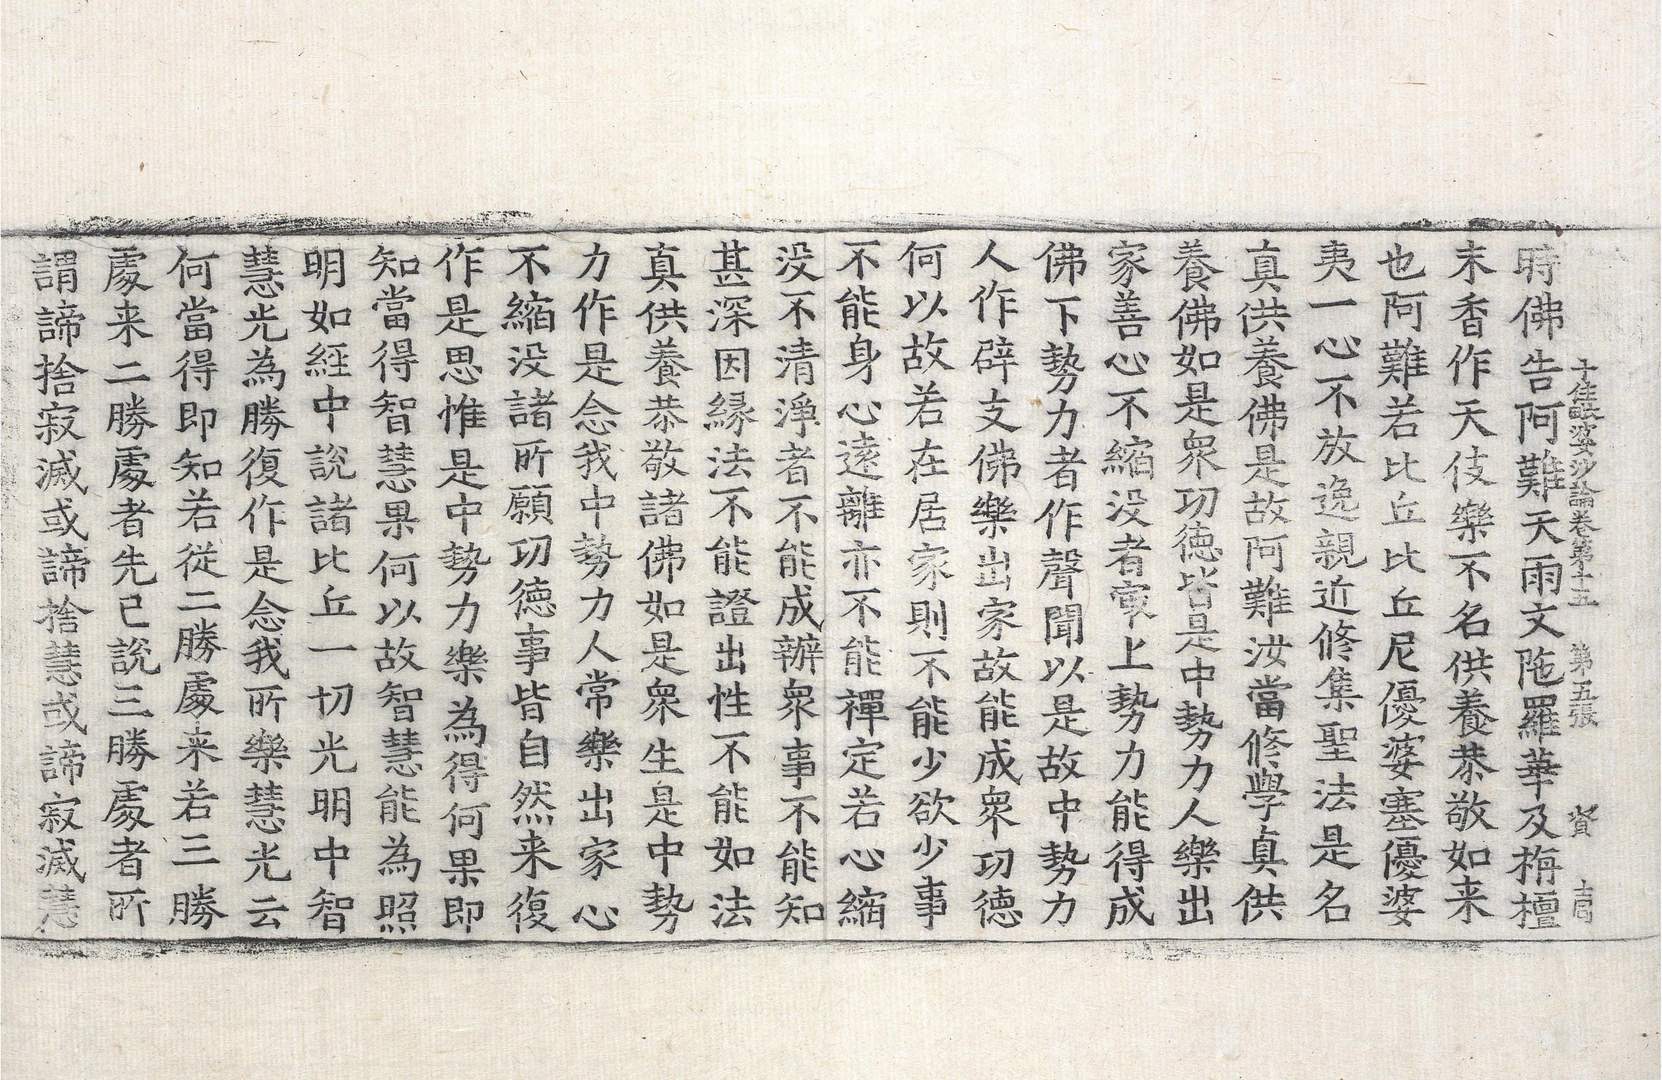 十住毗婆沙論卷第十五 第五張 賢
時佛告阿難天雨文陁羅華及栴檀
末香作天伎樂不名供養恭敬如来
也阿難若比丘比丘尼優婆塞優婆
夷一心不放逸親近修集聖法是名
真供養佛是故阿難汝當修學真供
養佛如是衆功徳皆是中勢力人樂出
家善心不縮没者㝡上勢力能得成
佛下勢力者作聲聞以是故中勢力
人作辟支佛樂出家故能成衆功德
何以故若在居家則不能少欲少事
不能身心遠離亦不能禪定若心縮
没不清淨者不能成辦衆事不能知
甚深因緣法不能證出性不能如法
真供養恭敬諸佛如是衆生是中勢
力作是念我中勢力人常樂出家心
不縮没諸所願功德事皆自然来復
作是思惟是中勢力樂為得何果即
知當得智慧果何以故智慧能為照
明如經中說諸比丘一切光明中智
慧光為勝復作是念我所樂慧光云
何當得即知若從二勝處来若三勝
處来二勝處者先已說三勝處者所
謂諦捨寂滅或諦捨慧或諦寂滅慧